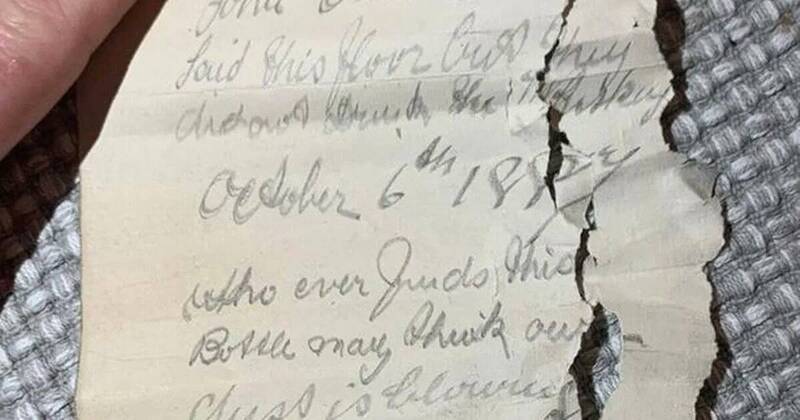 laid this floor but they
did not drink the Whiskey
October 6th 1887
who ever finds this
Bottle may think our
dust is blowing